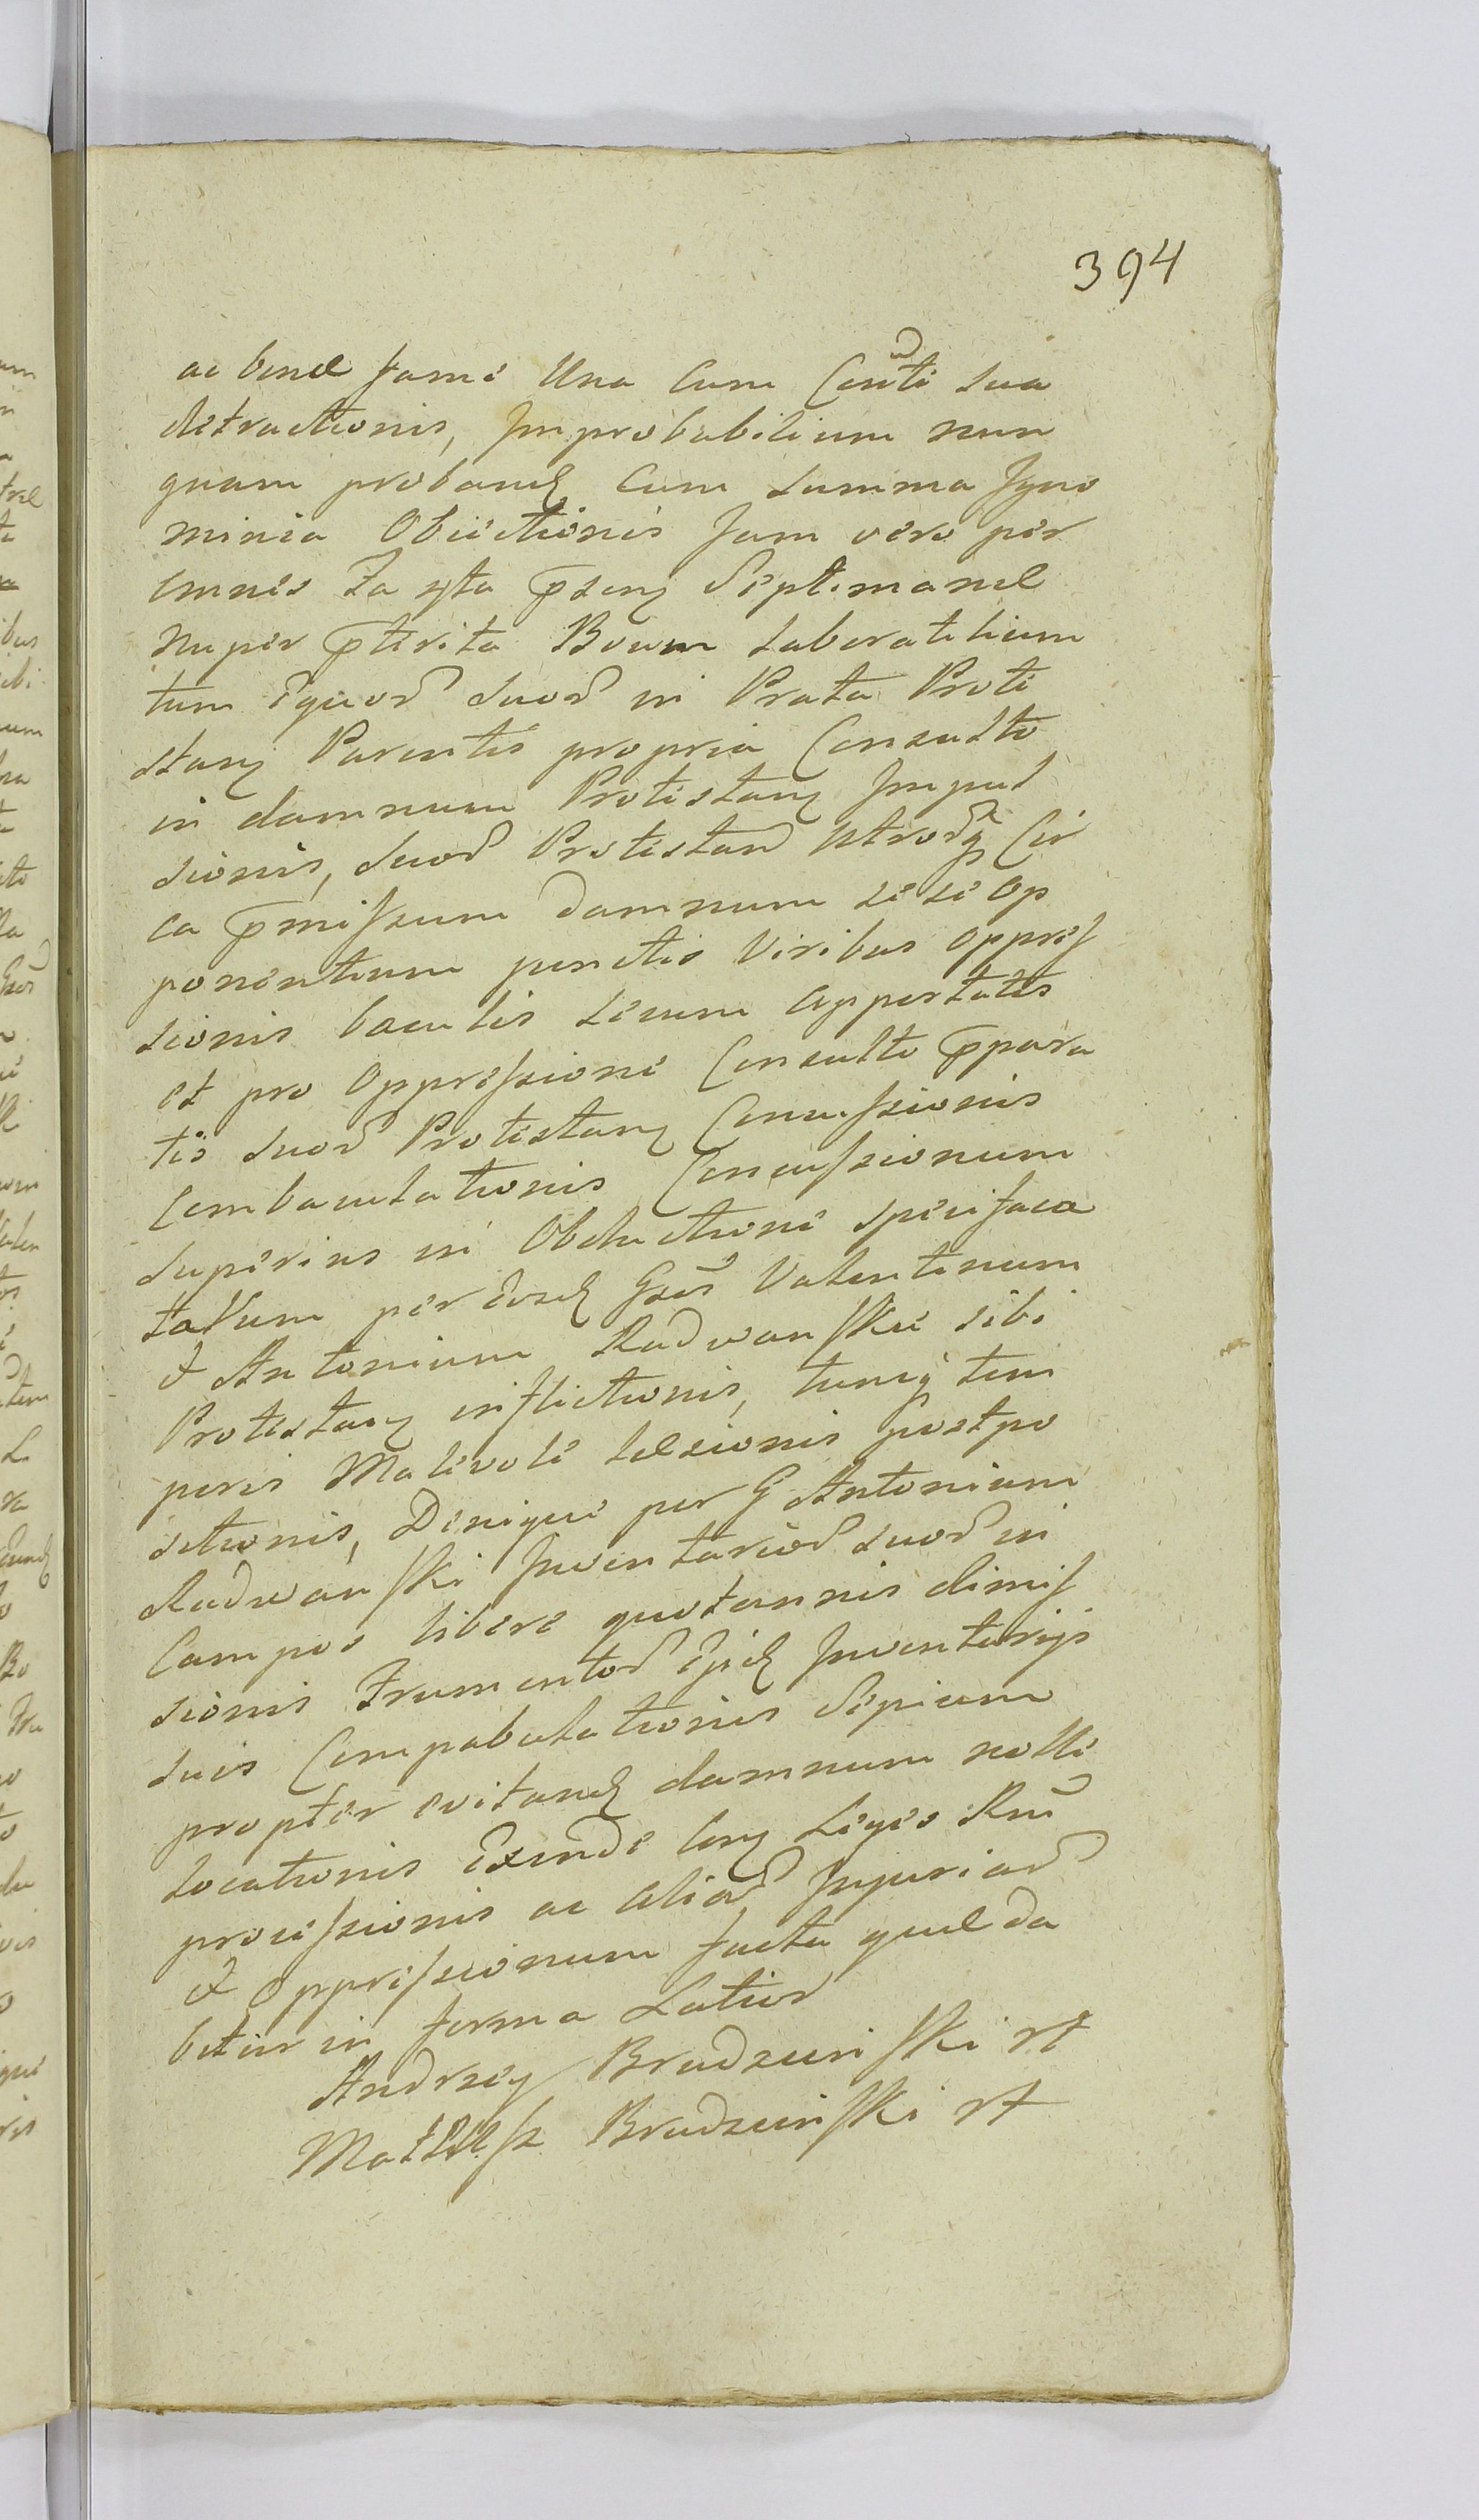 394
ac bonæ fame Una cum Conti sua
detractionis, Improbabilium nun
quam proband cum summa Igno
minia Obiectionis Jam vero per
omnes Ia sta pseng Septimanæ
nuper pterita Boum laboratilium
tum Equor suor in Prata Prote
stang Parentis propria Consulto
in damnum Protestang Impul
sionis, suor Protestan utrosq Cir
ca pmissum damnum sese op
ponentium junctis Viribus oppres
sionis baculis secum apportatis
et pro oppressione Consulto ppara
tis suor Protestang Concussionis
Combaculationis Concussionum
superius in Obductione specifica
tarum per eosd Gsos Valentinum
& Antonium Radwanskie sibi
Protestang inflictionis, tuncq tem
poris Malevole læsionis postpo
sitionis, Denique per G Antonium
Radwanski Inventarior suor in
Campos libere quotannis dimis
sionis Frumentor Ejsd Inventarijs
suis Compabulationis Sepium
propter evitand damnum nolle
locationis Exinde Cong Leges Rni
processionis ac aliar Injuriar
& oppressionum facta quæ da
betur in forma Latior
Andrzey Brudzinski rt
Mateusz Brudzinski rt